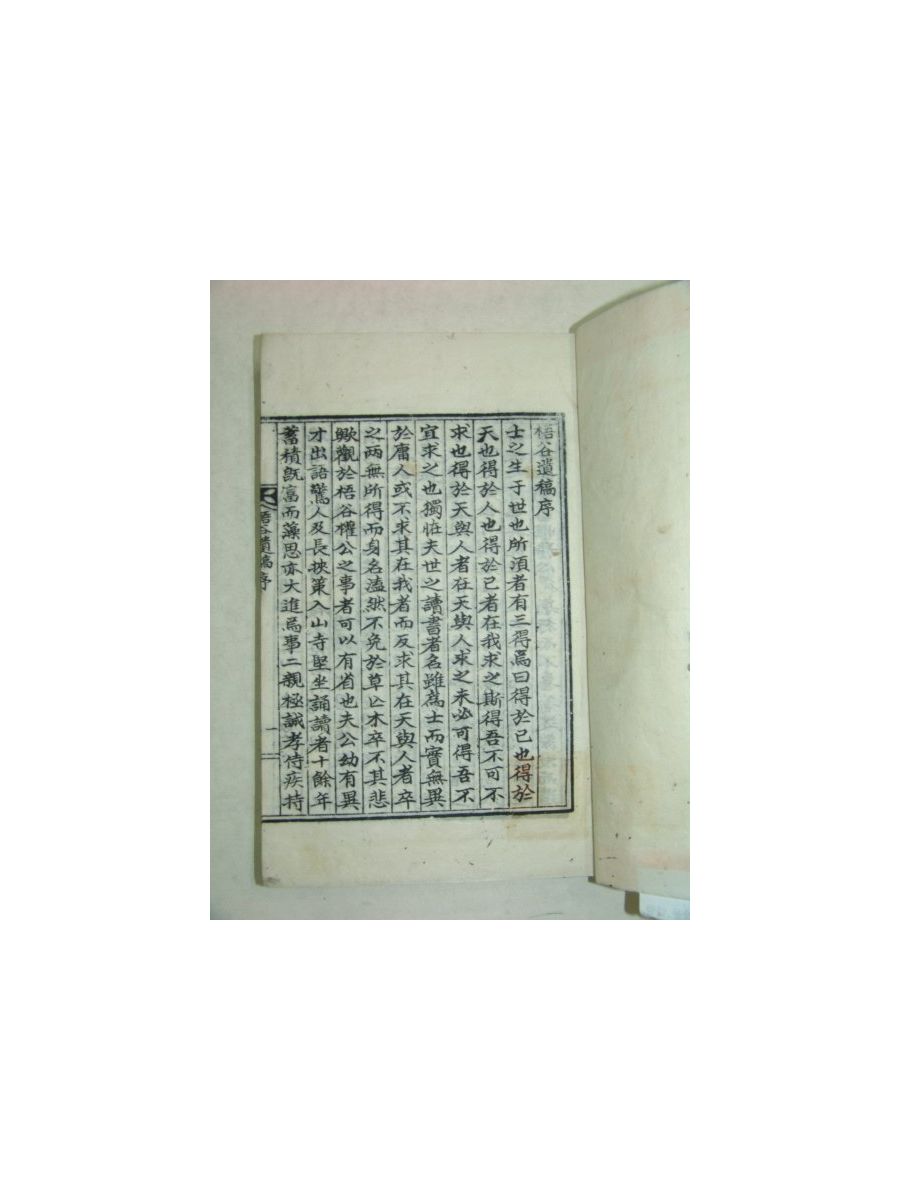 梧谷遺稿序
士之生于世也所須者有三得焉曰得於己也得於
天也得於人也得於己者在我求之斯得吾不可不
求也得於天與人者在天與人求之未必可得吾不
宜求之也獨恠夫世之讀書者名雖爲士而實無異
於庸人或不求其在我者而反求其在天與人者卒
之兩無所得而身名溘然不免於草亡木卒不其悲
歟觀於梧谷權公之事者可以有省也夫公幼有異
才出語驚人及長挾策入山寺堅坐誦讀者十餘年
蓄積旣富而藻思亦大進焉事二親極誠孝侍疾持
梧谷遺稿序
一